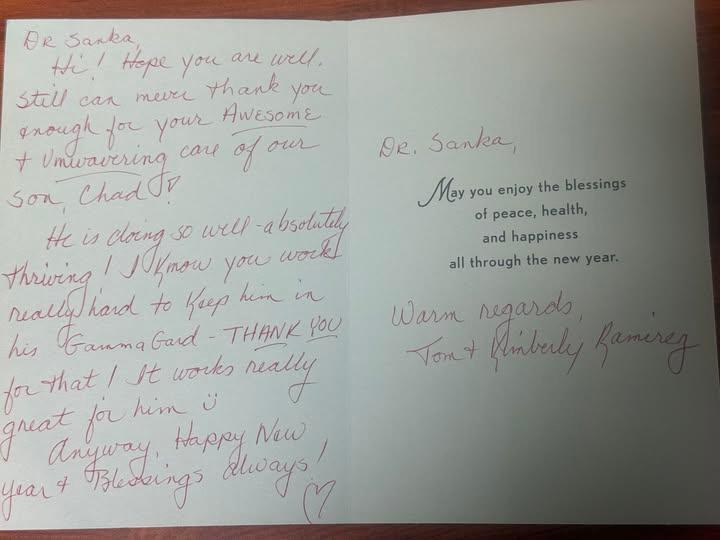 Dr Sanka,
Hi! Hope you are well.
Still can never thank you
enough for your AWESOME
+ Unwavering care of our
son, Chad ♡!
He is doing so well - absolutely
thriving! I know you work
really hard to keep him in
his GammaGard - THANK YOU
for that! It works really
great for him ☺
Anyway, Happy New
Year + Blessings always!
♡
Dr. Sanka,
May you enjoy the blessings
of peace, health,
and happiness
all through the new year.
Warm regards,
Tom + Kimberly Ramirez